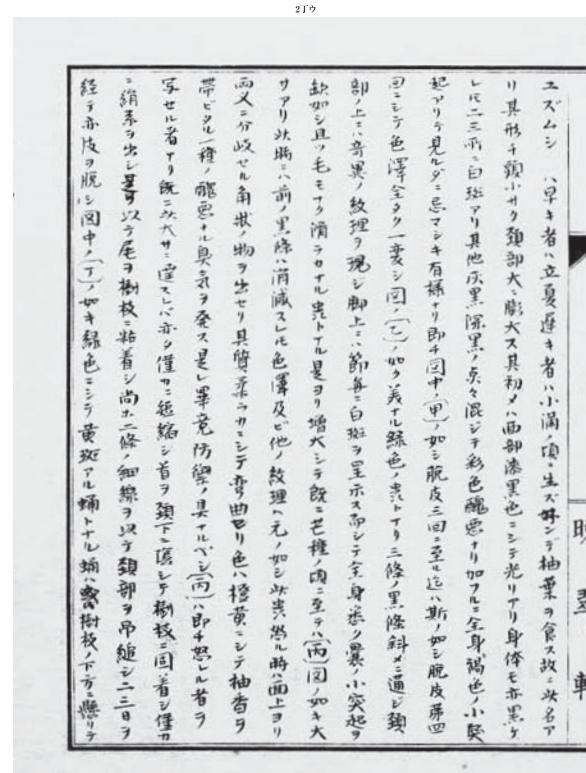 2丁ウ
ユズムシ ハ早キ者ハ立夏遅キ者ハ小満ノ頃ニ生ズ好ンデ柚葉ヲ食ス故ニ此名ア
リ其形チ頭小サク頚部大ニ膨大ス其初メハ面部漆黒色ニシテ光リアリ身体モ亦黒ケ
レ𪜈二三所ニ白斑アリ其他灰黒深黒ノ点々混ジテ彩色醜悪ナリ加フルニ全身褐色ノ小突
起アリテ見ルダニ忌マシキ有様ナリ即チ図中ノ(甲)ノ如シ脱皮三回ニ至ル迄ハ斯ノ如シ脱皮第四
回ニシテ色澤全タク一変シ図ノ(乙)ノ如ク美ナル緑色ノ虫トナリ三條ノ黒條斜メニ逼シ頚
部ノ上ニハ奇異ノ紋理ヲ現ジ脚上ニハ節毎ニ白斑ヲ呈ホス而シテ全身悉ク曩ノ小突起ヲ
欠如シ且ツ毛モナク滑テカナル虫トナル是ヨリ増大シテ既ニ芒種ノ頃ニ至テハ(丙)図ノ如キ大
サアリ此時ニハ前ノ黒條ハ消滅スレ𪜈色澤及ビ他ノ紋理ハ元ノ如シ此虫怒ル時ハ面上ヨリ
両叉ニ分岐セル角状ノ物ヲ出セリ其質柔ラカニシテ弯曲セリ色ハ橙黄ニシテ柚香ヲ
帯ビタル一種ノ醜悪ナル臭気ヲ発ス是レ畢竟防禦ノ具ナルベシ(丙)ハ即チ怒レル者ヲ
写セル者ナリ既ニ此大サニ達スレバ亦タ僅カニ短縮シ首ヲ頚下ニ隠シテ樹枝ニ固着シ僅カ
ニ絹糸ヲ出シ是ヲ以テ尾ヲ樹枝ニ粘着シ尚ホ二條ノ細線ヲ以テ頚部ヲ吊縋シ二三日ヲ
経テ亦皮ヲ脱シ図中ノ(丁)ノ如キ緑色ニシテ黄斑アル蛹トナル蛹ハ樹枝ノ下方ニ懸リテ